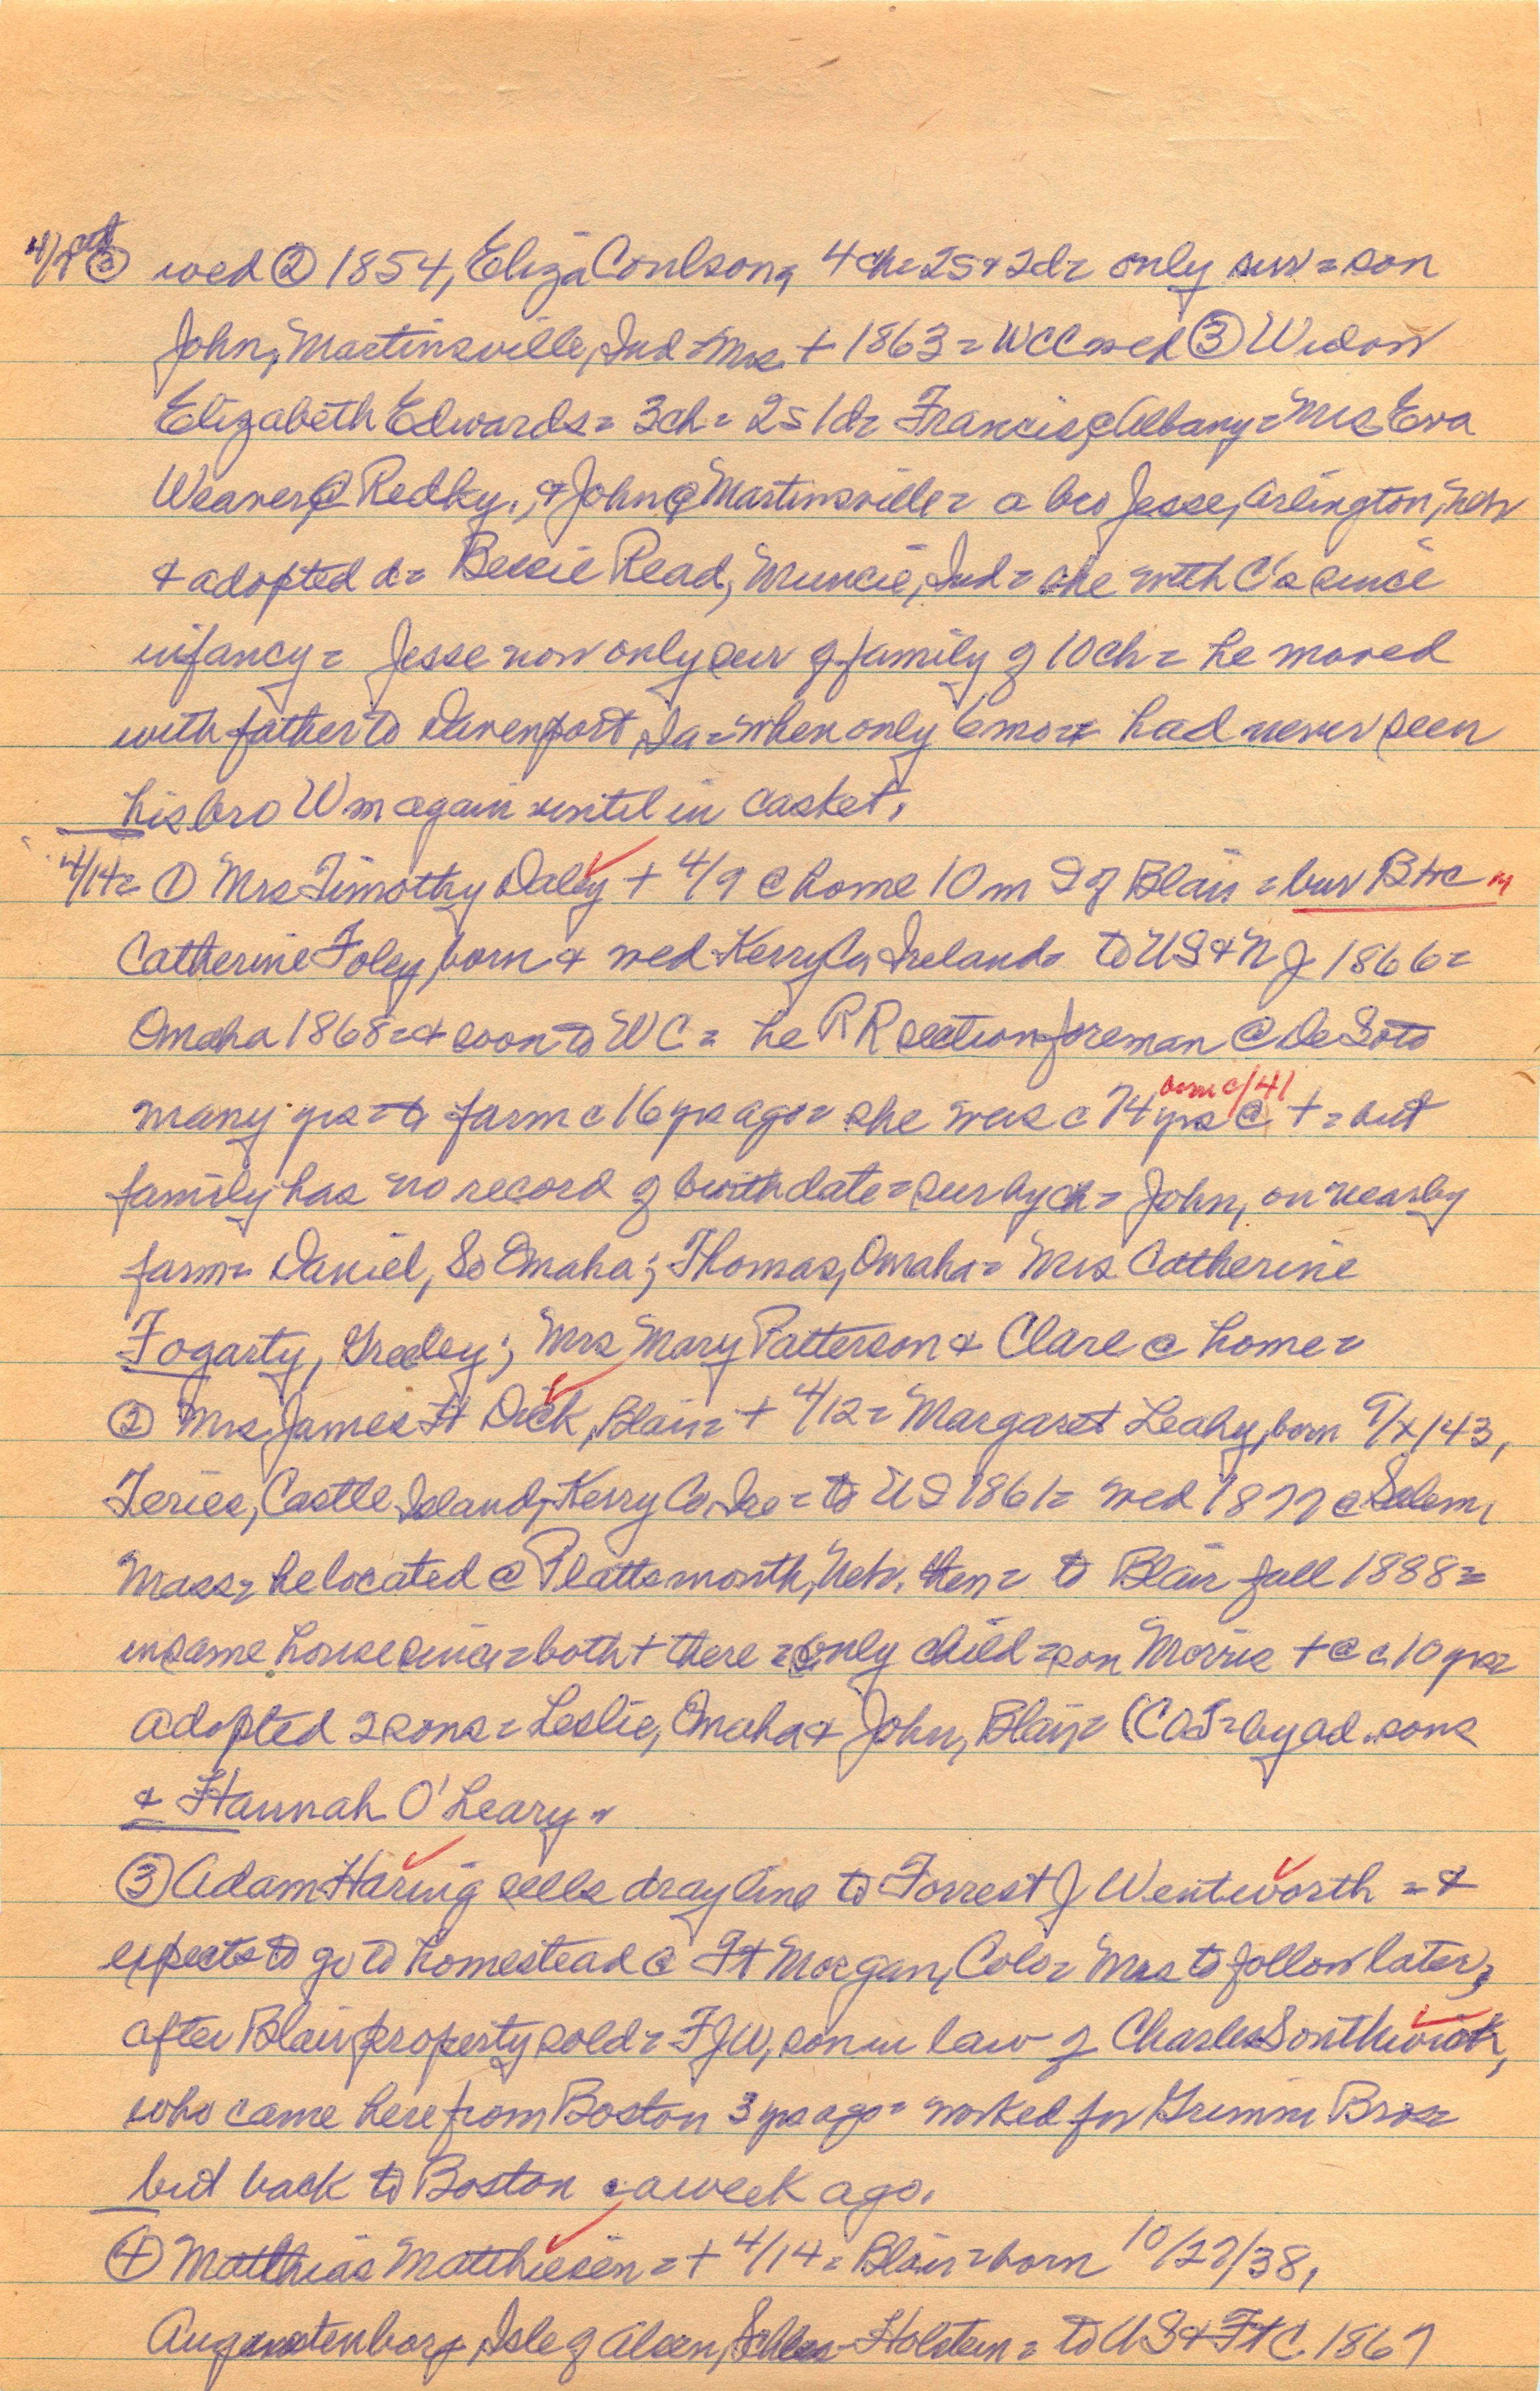 wed ② 1854, Eliza Coulson, 4 ch = 2s & 2d = only surv = son
John, Martinsville, Ind = Mrs + 1863 = WCC wed ③ Widow
Elizabeth Edwards = 3ch = 2s 1d = Francis @ Albany = Mrs Eva
Weaver @ Redky., & John @ Martinsville = a bro Jesse, Arlington, Neb
& adopted d = Bessie Read, Muncie, Ind = she with C's since
infancy = Jesse now only sur of family of 10 ch = he moved
with father to Davenport, Ia = when only 6 mo = had never seen
his bro Wm again until in casket.
4/14 = ① Mrs Timothy Daley + 4/9 @ home 10 m S of Blair = bur
Catherine Foley, born & wed Kerry Co, Ireland = to US & NJ 1866 =
Omaha 1868 = & soon to WC = he RR section foreman @ De Soto
born c/41
many yrs = to farm c 16 yrs ago = she was c 74 yrs @ + = but
family has no record of birth date = sur by ch = John, on nearby
farm = Daniel, So Omaha; Thomas, Omaha = Mrs Catherine
Fogarty, Greeley; Mrs Mary Patterson & Clare @ home =
② Mrs James H Dick, Blair = + 4/12 = Margaret Leahy, born 9/x/43,
Teries, Castle Island, Kerry Co, Ire = to US 1861 = wed 1877 @ Salem,
Mass = he located @ Plattsmouth, Neb. then = to Blair fall 1888 =
in same house since = both + there = only child = son Morris + @ c 10 yrs =
adopted 2 sons = Leslie, Omaha & John, Blair = (COT = by ad. sons
& Hannah O'Leary =
③ Adam Haring sells dray line to Forrest J Wentworth = &
expects to go to homestead @ Ft Morgan, Colo = Mrs to follow later,
after Blair property sold = FJW, son in law of Charles Southwick,
who came here from Boston 3 yrs ago = worked for Grimm Bros =
but back to Boston c a week ago.
④ Matthias Matthiesen = + 4/14 = Blair = born 10/27/38,
Augustenborg, Isle of Alsen, Schles-Holstein = to US & Ft C. 1867